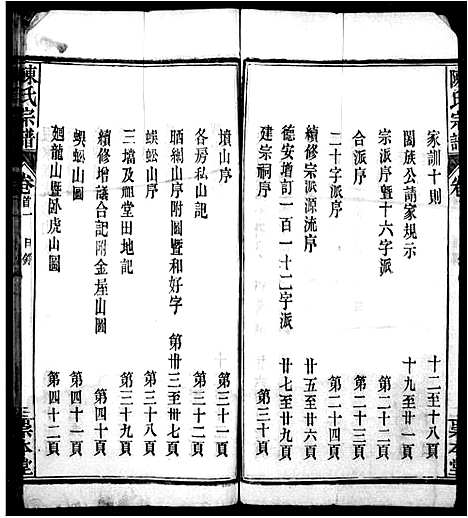 陳氏宗譜
卷
家訓十則 十二至十八頁
閤族公請家規示 十九至廿一頁
宗派序暨十六字派 第廿二頁
合派序 第二十三頁
二十字派序 第二十四頁
續修宗派源流序 廿五至廿六頁
德安增訂一百一十二字派 廿七至廿九頁
建宗祠序 第三十頁
墳山序 第三十一頁
各房私山記 第三十二頁
晒網山序附圖暨和好字 第卅三至卅七頁
蜈蚣山序 第三十八頁
三墖及祖堂田地記 第三十九頁
續修增議合記附金屋山圖 第四十頁
蜈蚣山圖 第四十一頁
廻龍山暨臥虎山圖 第四十二頁
陳氏宗譜
卷首一 目錄
三
聚本堂